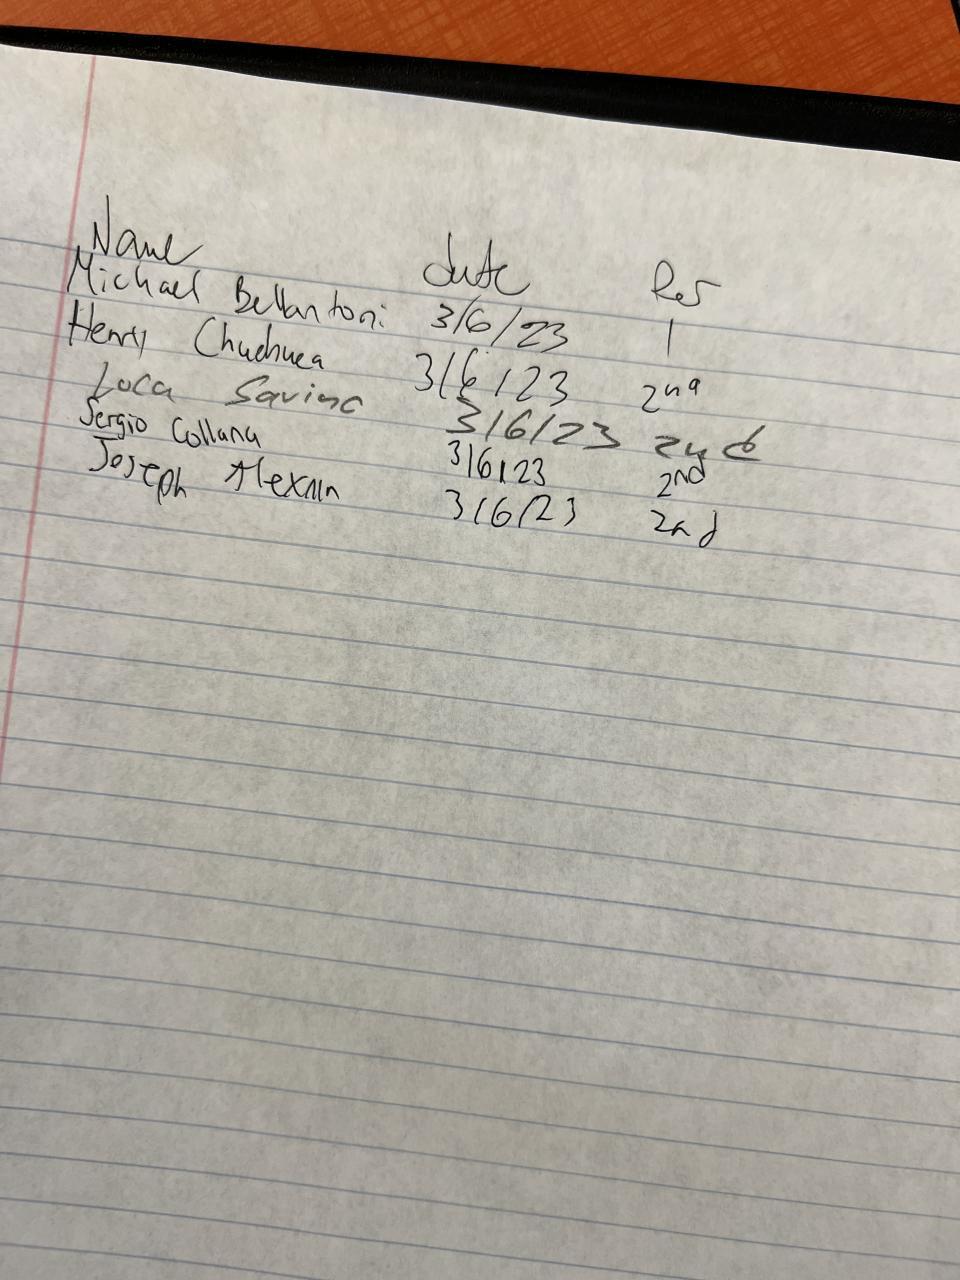 Name date Res
Michael Bellantoni 3/6/23 1
Henry Chuchuca 3/6/23 2nd
Luca Savino 3/6/23 2nd
Sergio Collana 3/6/23 2nd
Joseph 3/6/23 2nd